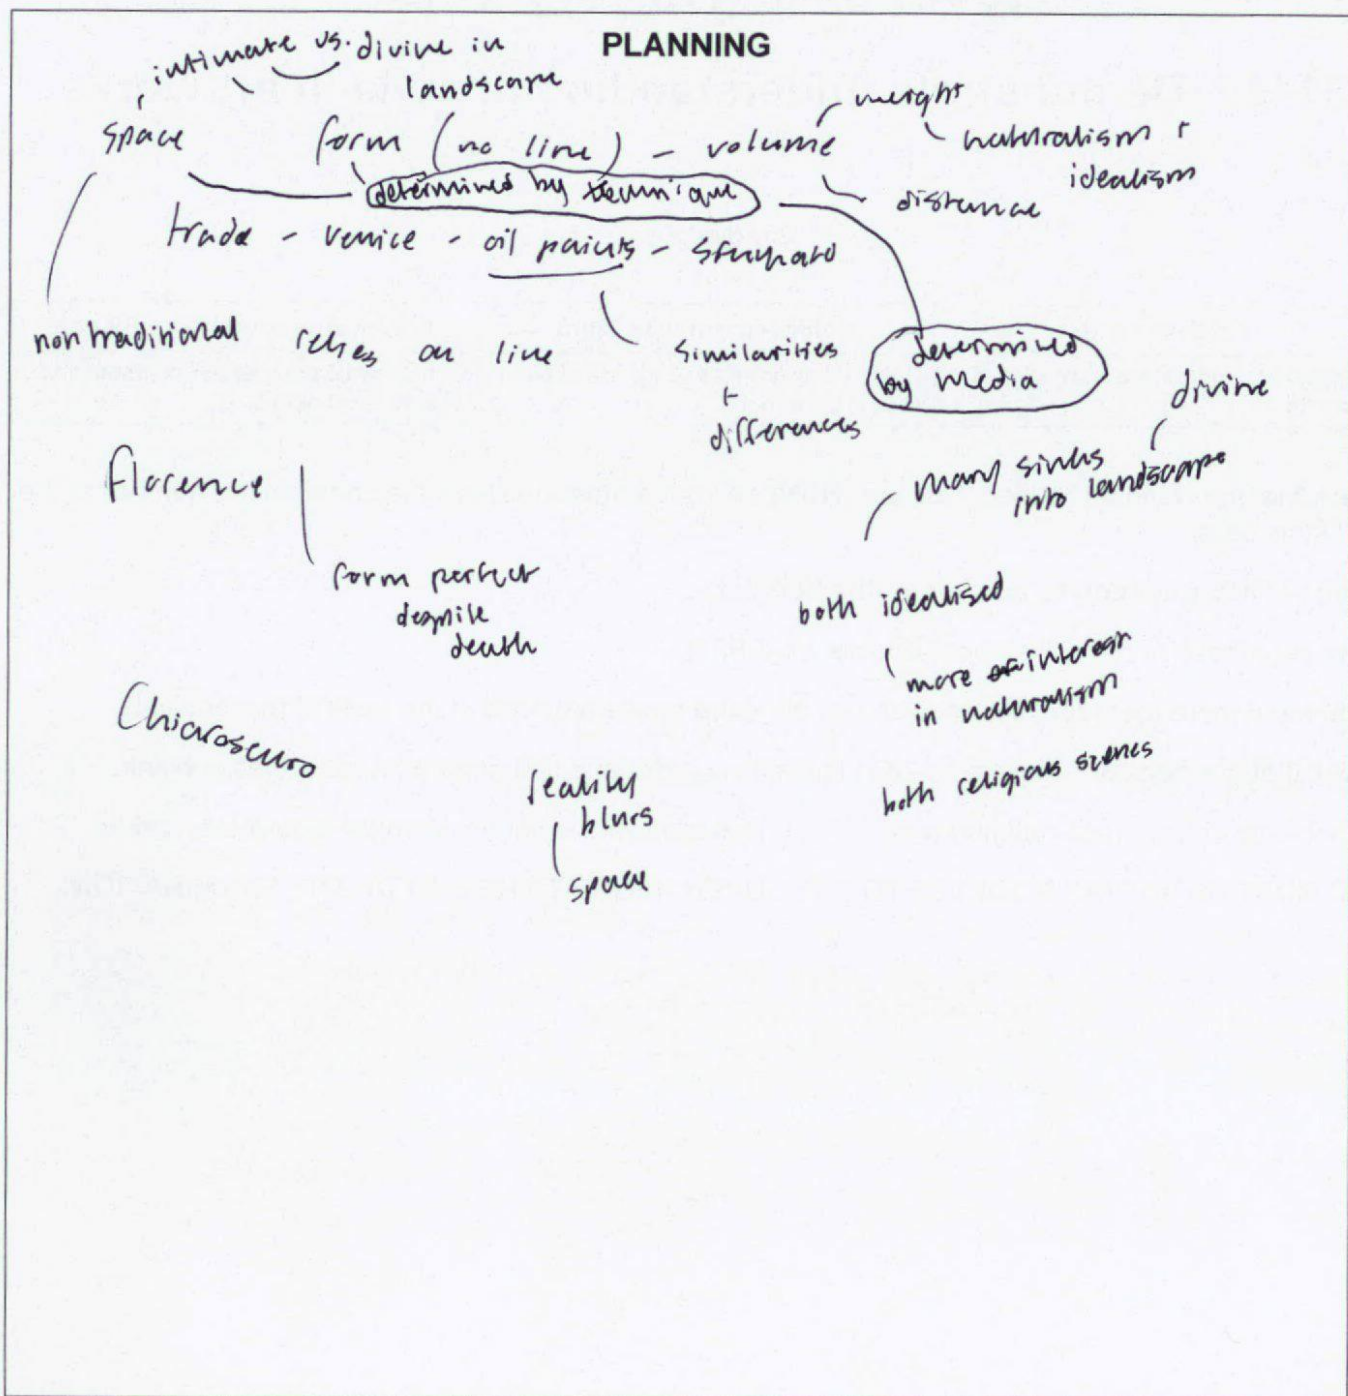 PLANNING
intimate vs. divine in
landscape
space
form (no line) - volume
weight
naturalism +
idealism
determined by technique
distance
trade - Venice - oil paints - sfumato
non traditional
relies on line
similarities
+
differences
determined
by media
divine
Florence
many sinks
into landscape
form perfect
despite
death
both idealised
more interest
in naturalism
Chiaroscuro
reality
blurs
space
both religious scenes